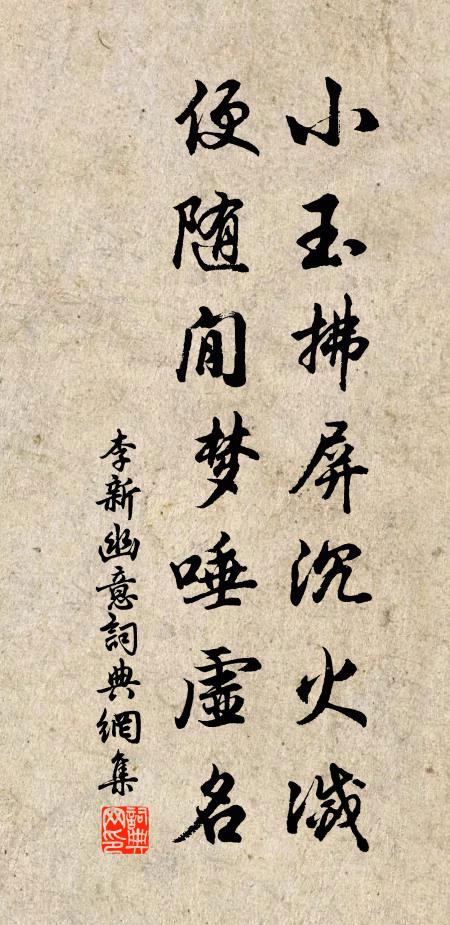 小玉拂屏沉火减
便随闲梦唾虚名
李新幽意詞典網集
詞典網印